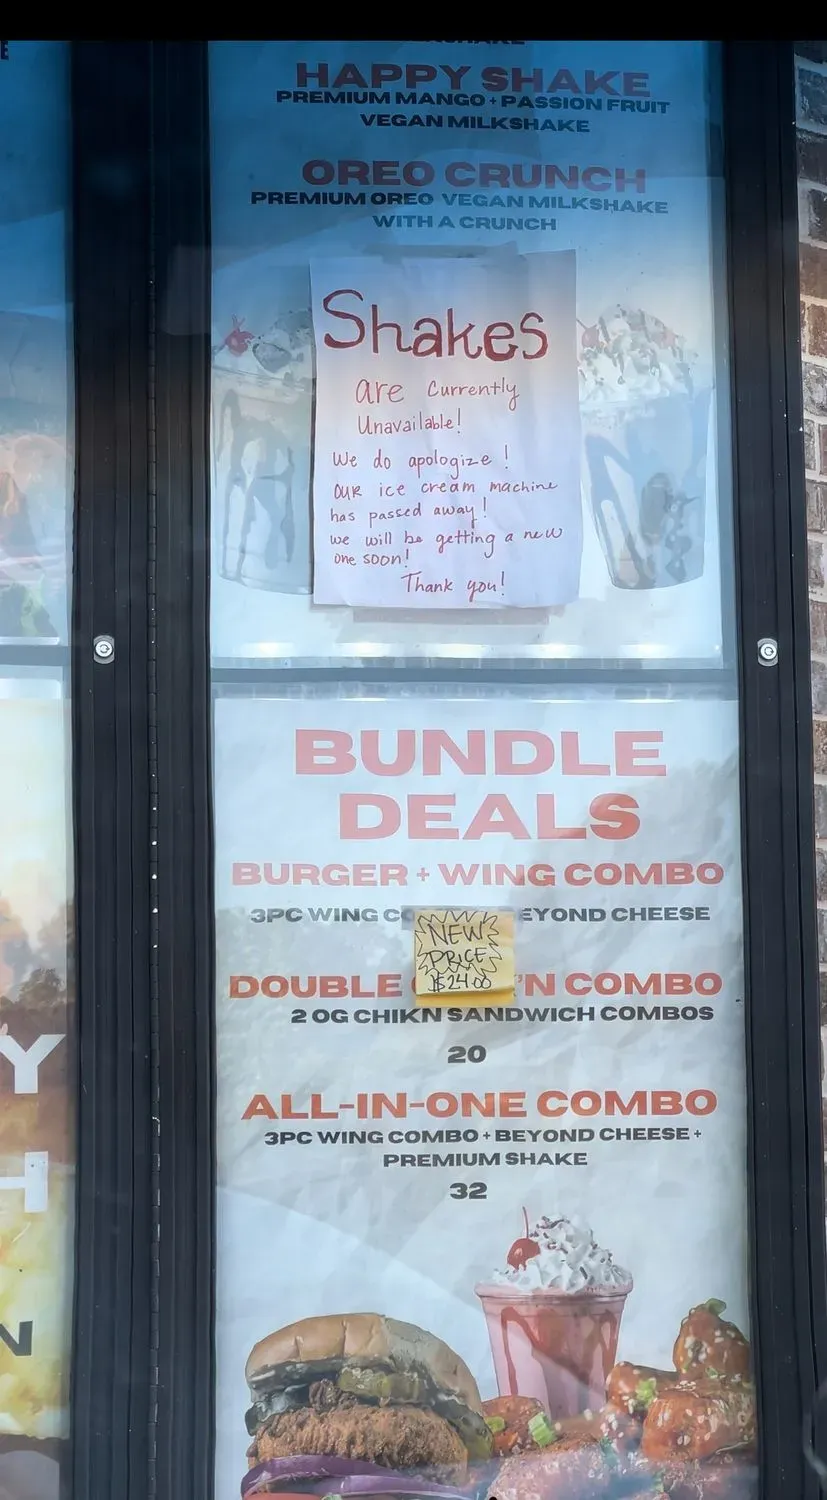 HAPPY SHAKE
PREMIUM MANGO + PASSION FRUIT
VEGAN MILKSHAKE
OREO CRUNCH
PREMIUM OREO VEGAN MILKSHAKE
WITH A CRUNCH
Shakes
are Currently
Unavailable!
We do apologize!
our ice cream machine
has passed away!
we will be getting a new
one soon!
Thank you!
BUNDLE
DEALS
BURGER + WING COMBO
3PC WING EYOND CHEESE
NEW
PRICE
$24.00
DOUBLE 'N COMBO
2 OG CHIKN SANDWICH COMBOS
20
ALL-IN-ONE COMBO
3PC WING COMBO + BEYOND CHEESE +
PREMIUM SHAKE
32
Y
H
N